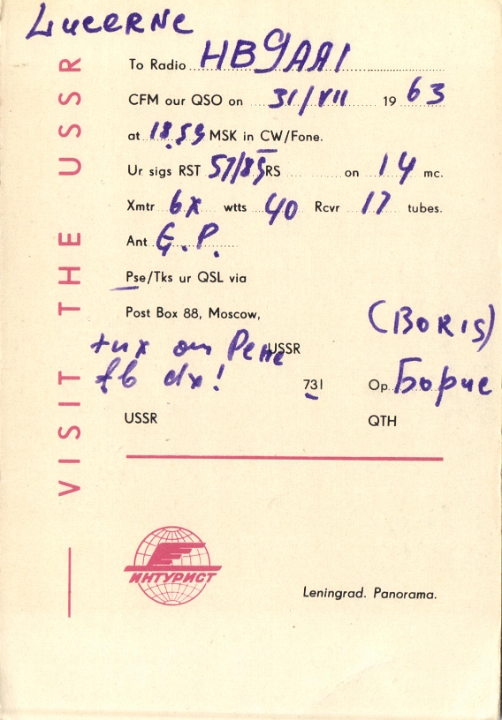 Lucerne
To Radio HB9AA1
CFM our QSO on 31/VII 1963
at 18.59 MSK in CW/Fone.
Ur sigs RST 57/89 RS on 14 mc.
Xmtr 6x wtts 40 Rcvr 17 tubes.
Ant G.P.
Pse/Tks ur QSL via
Post Box 88, Moscow,
(BORIS)
USSR
tnx om
fb dx! 73! Op. Борис
USSR QTH
VISIT THE USSR
ИНТУРИСТ
Leningrad. Panorama.